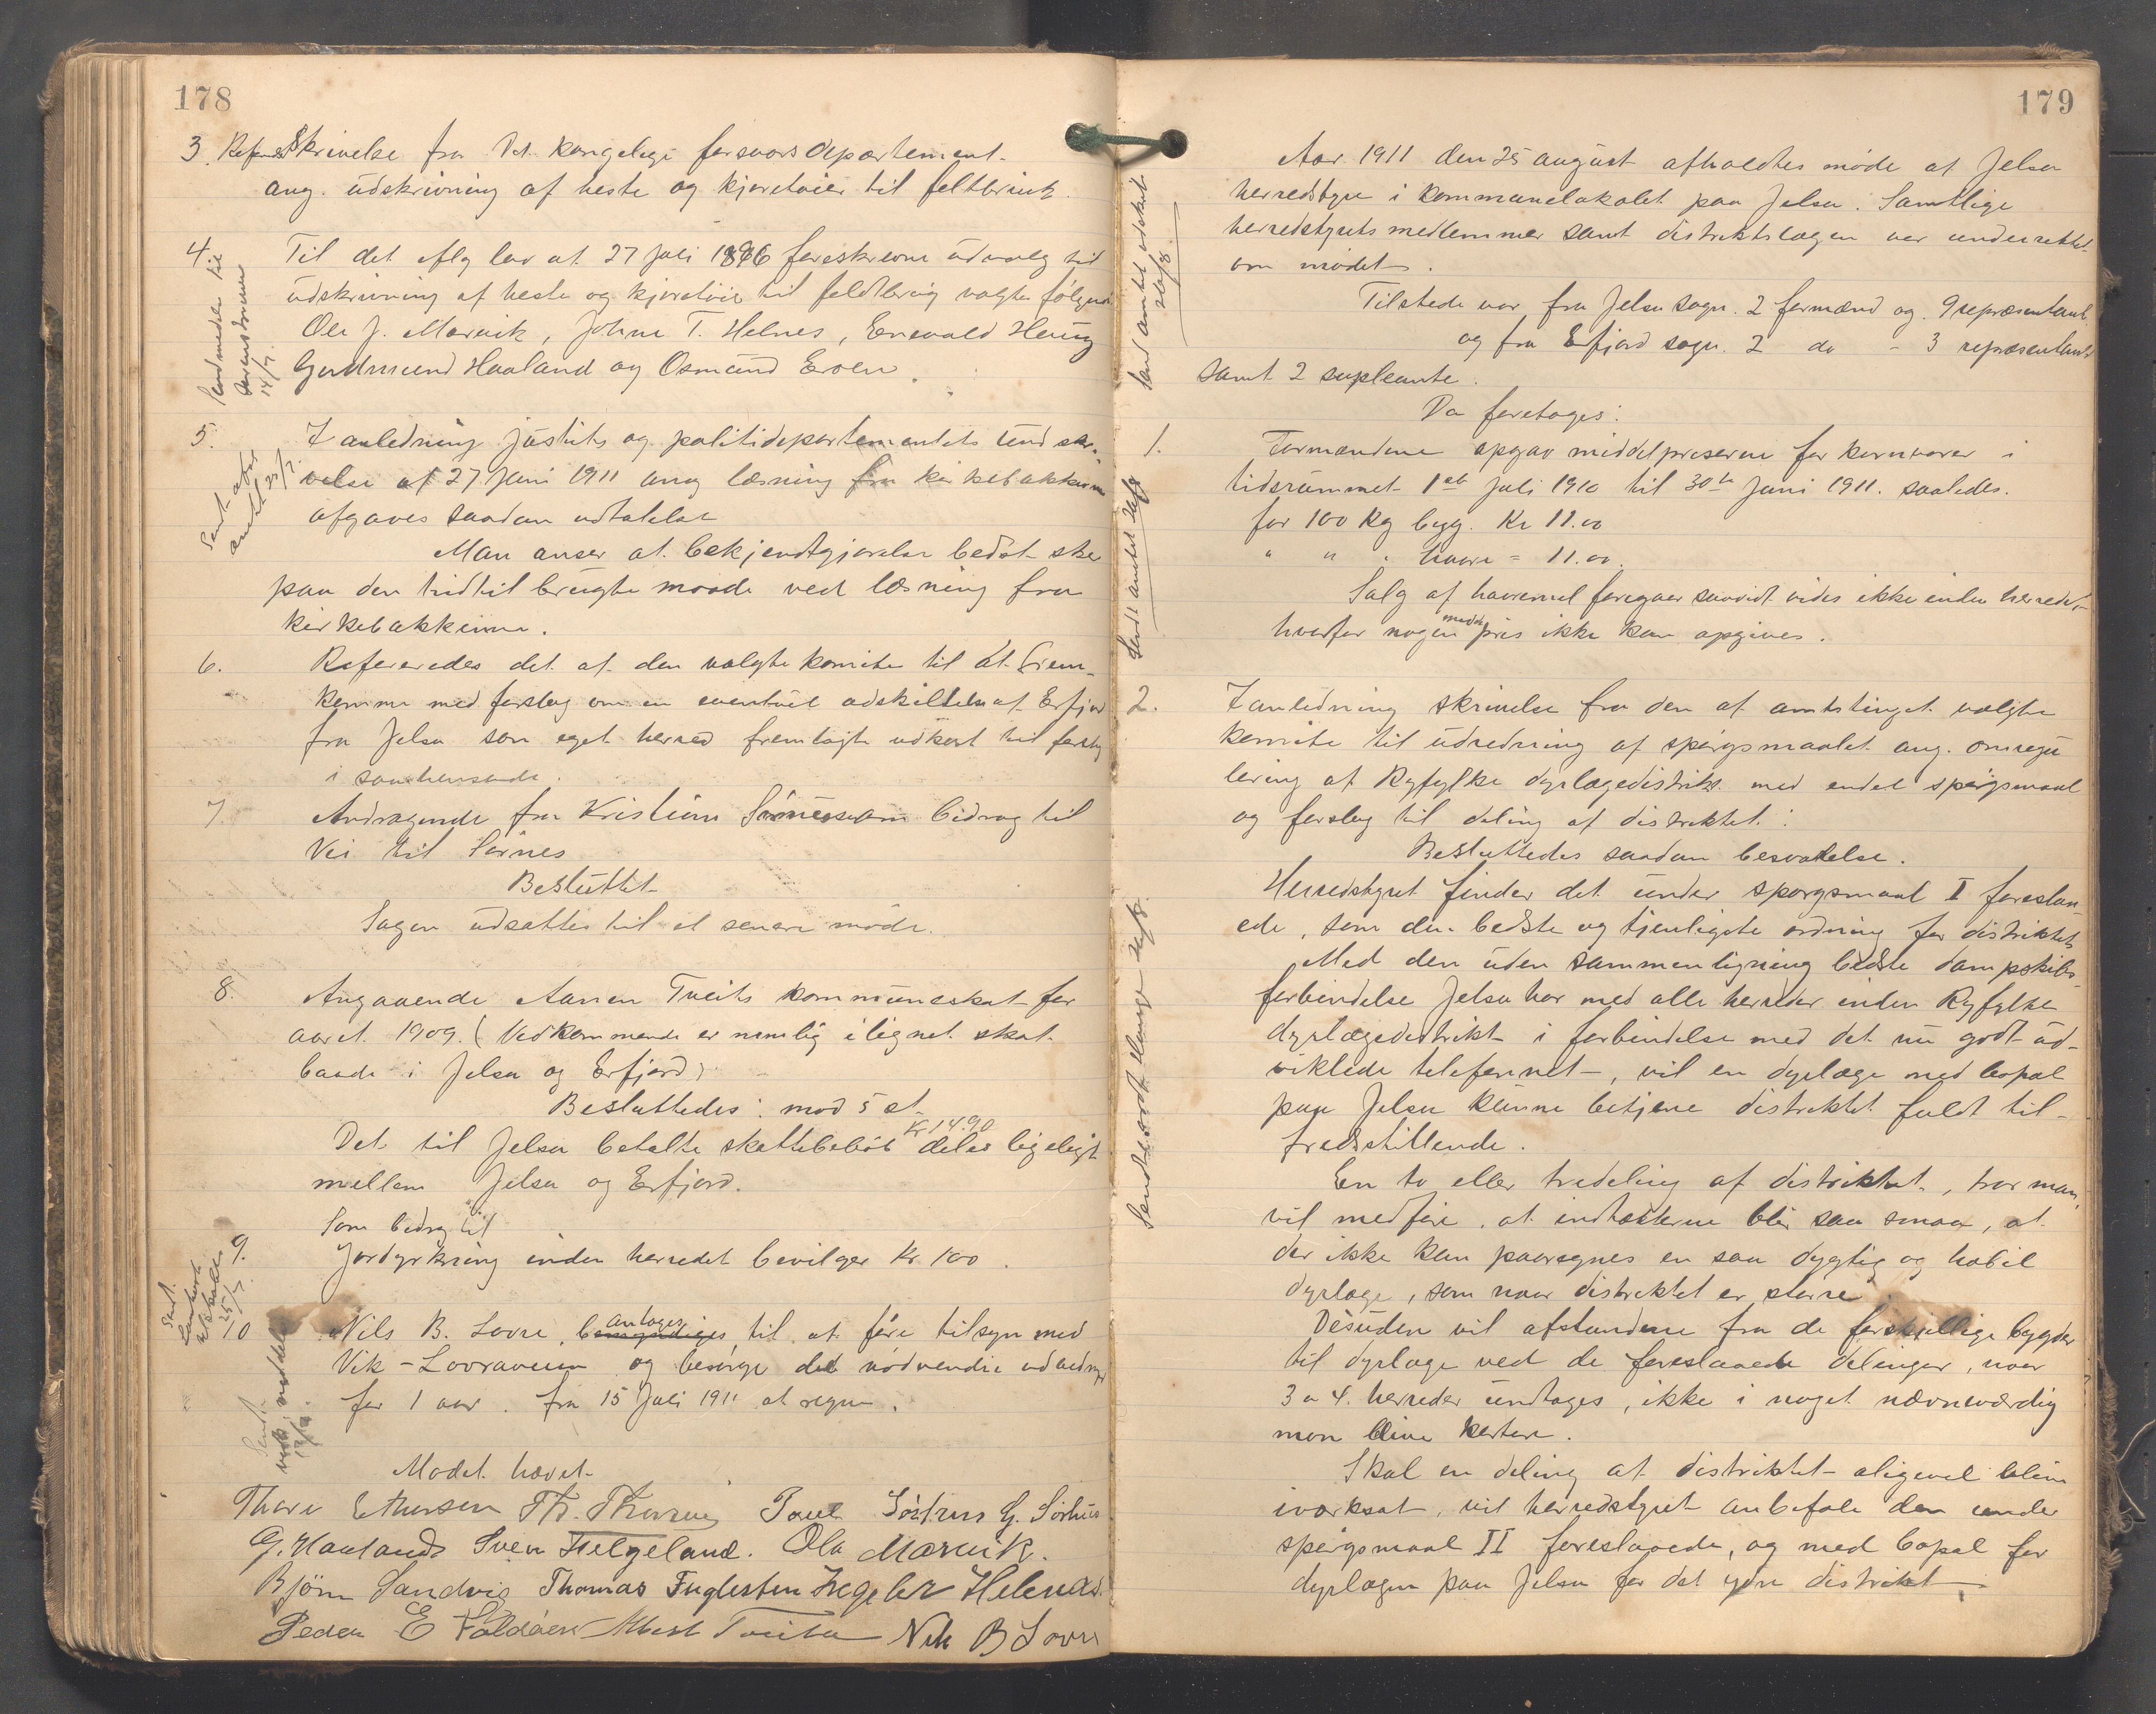 178
3. Refer. Skrivelse fra Det kongelige forsvarsdepartement
ang. udskrivning af heste og kjøretøier til feltbruk.
4. Til det ifølg lov af 27 Juli 1896 foreskrevne udvalg til
udskrivning af heste og kjøretøie til feldbrug valgte følgende
Ole J. Marvik, Johne T. Helnes, Enevald
Gudmund Haaland og Osmund Eroen.
5. I anledning Justits og politidepartementets rundskri-
velse af 27 Juni 1911 ang læsning fra kirkebakkerne
afgaves saadan udtalelse
Man anser at bekjendtgjørelse bedst sker
paa den hidtil brugte maade ved læsning fra
kirkebakkerne.
6. Refereredes det af den valgte komite til at frem-
komme med forslag om en eventuel adskillelse af Erfjord
fra Jelsa som eget herred fremlagte udkast til forslag
i saahenseende.
7. Andragende fra Kristian Sørnes om bidrag til
Vei til Sørnes
Besluttet
Sagen udsattes til et senere møde.
8. Angaaende Aanen Tveits kommuneskat for
aaret 1909. (Vedkommende er nemlig ilignet skat
baade i Jelsa og Erfjord)
Besluttedes: mod 5 st.
Det til Jelsa betalte skattebeløb Kr 14.90 deles ligeligt
mellem Jelsa og Erfjord.
9. Som bidrag til
Jordyrkning inden herredet bevilges Kr. 100.
10 Nils B. Lovre, bemyndiges antages til at føre tilsyn med
Vik-Lovraveien og besørge det nødvendige udbedring
for 1 aar. fra 15 Juli 1911 at regne.
Mødet hævet
Thore Ethersen Th. Thorsnes Poul Sørhus G. Sørhus
G. Haaland Sven Helgeland. Ola Marvik.
Bjørn Sandvig Thomas Fuglesten Helenes
Peder E Foldøen Albert Tveita Nils B Lovre
Sendt afskr
amtet 25/7.
179
Aar 1911 den 25 august afholdtes møde af Jelsa
herredstyre i kommunelokalet paa Jelsa. Samtlige
herredstyrets medlemmer samt distriktslægen var underrettet
om mødet.
Tilstede var fra Jelsa sogn. 2 formænd og 9 repræsentant.
og fra Erfjord sogn. 2 do - 3 repræsentant
samt 2 supleante.
Da foretages:
1. Formændene opgav middelpriserne for kornvarer i
tidsrummet 1ste Juli 1910 til 30te Juni 1911. saaledes.
for 100 Kg byg. Kr 11.00
" " " havre = 11.00.
Salg af havremel foregaar saavidt vides ikke inden herredet,
hvorfor nogen middel pris ikke kan opgives.
2. I anledning skrivelse fra den af amtstinget valgte
komite til udredning af spørgsmaalet ang. omregu
lering af Ryfylke dyrlægedistrikt med endel spørgsmaal
og forslag til deling af distriktet:
Besluttedes saadan besvarelse.
Herredstyret finder det under spørgsmaal I foreslaa-
ede, som den bedste og tjenligste ordning for distriktet.
Med den uden sammenligning bedste dampskibs-
forbindelse Jelsa har med alle herreder inden Ryfylke
dyrlægedistrikt i forbindelse med det nu godt ud-
viklede telefonnet, vil en dyrlæge med bopæl
paa Jelsa kunne betjene distriktet fuldt til-
fredsstillende.
En to eller tredeling af distriktet, tror man,
vil medføre, at indtækterne blir saa smaa, at
der ikke kan paaregnes en saa dygtig og habil
dyrlæge, som naar distriktet er større.
Desuden vil afstandene fra de forskjellige bygder
til dyrlæge ved de foreslaaede delinger, naar
3 a 4. herreder undtages, ikke i noget nævneværdig
mon blive kortere.
Skal en deling af distriktet aligevel blive
iværksat, vil herredstyret anbefale den under
spørgsmaal II foreslaaede, og med bopæl for
dyrlægen paa Jelsa for det ydre distrikt.
Sendt amtet udskrift
Sendt amtet